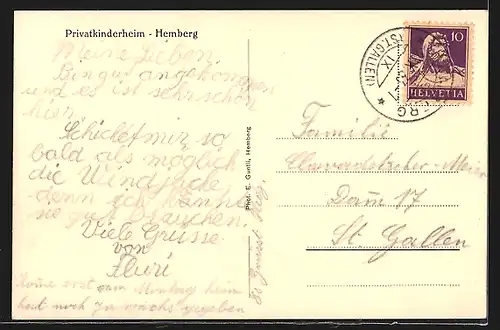 Privatkinderheim - Hemberg
Meine Lieben.
Bin gut angekommen
und es ist sehr schön
hier.
Schickt mir so
bald als möglich
die Windjacke
denn ich kann
sie gut brauchen.
Viele Grüsse
von
Komme erst am Montag heim
heut noch
Phot. E. Guntli, Hemberg
10
HELVETIA
(ST. GALLEN)
IX
Familie
Dam 17
St. Gallen